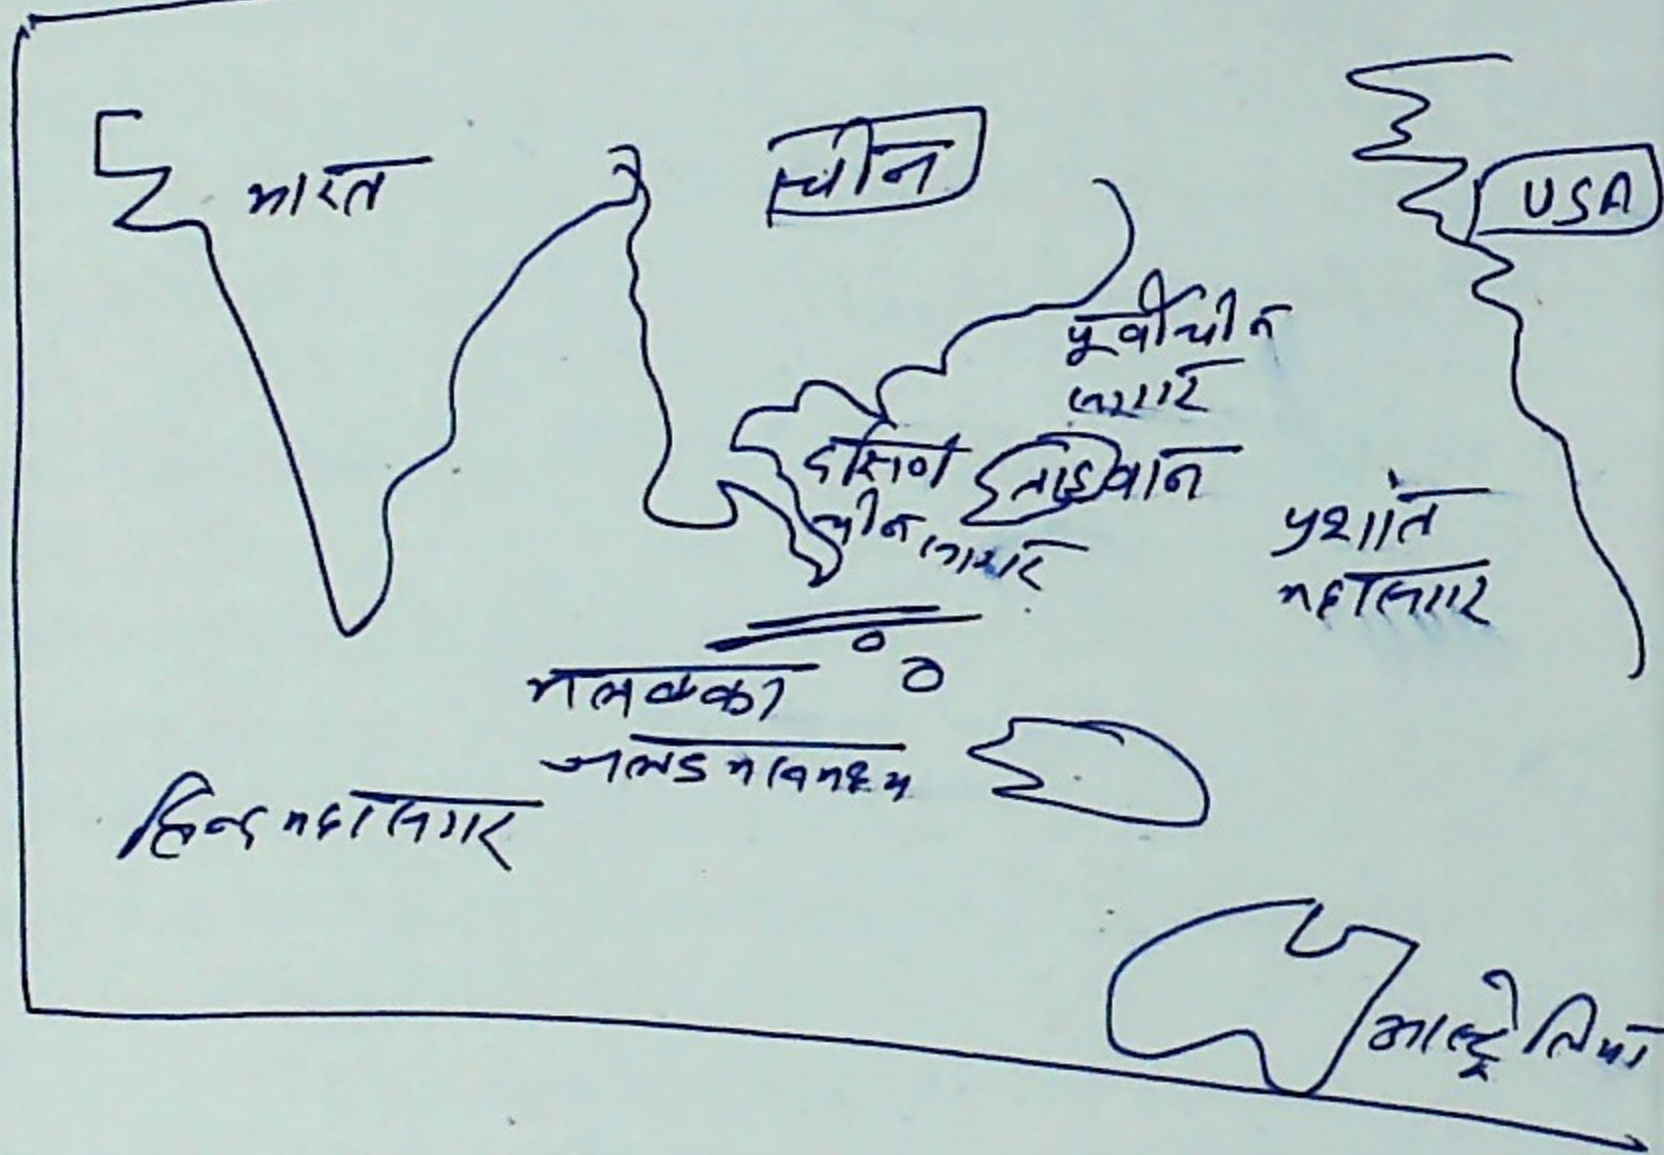 भारत
चीन
USA
पूर्वी चीन
सागर
दक्षिण
चीन सागर
ताइवान
प्रशांत
महासागर
मलक्का
जलडमरुमध्य
हिन्द महासागर
आस्ट्रेलिया